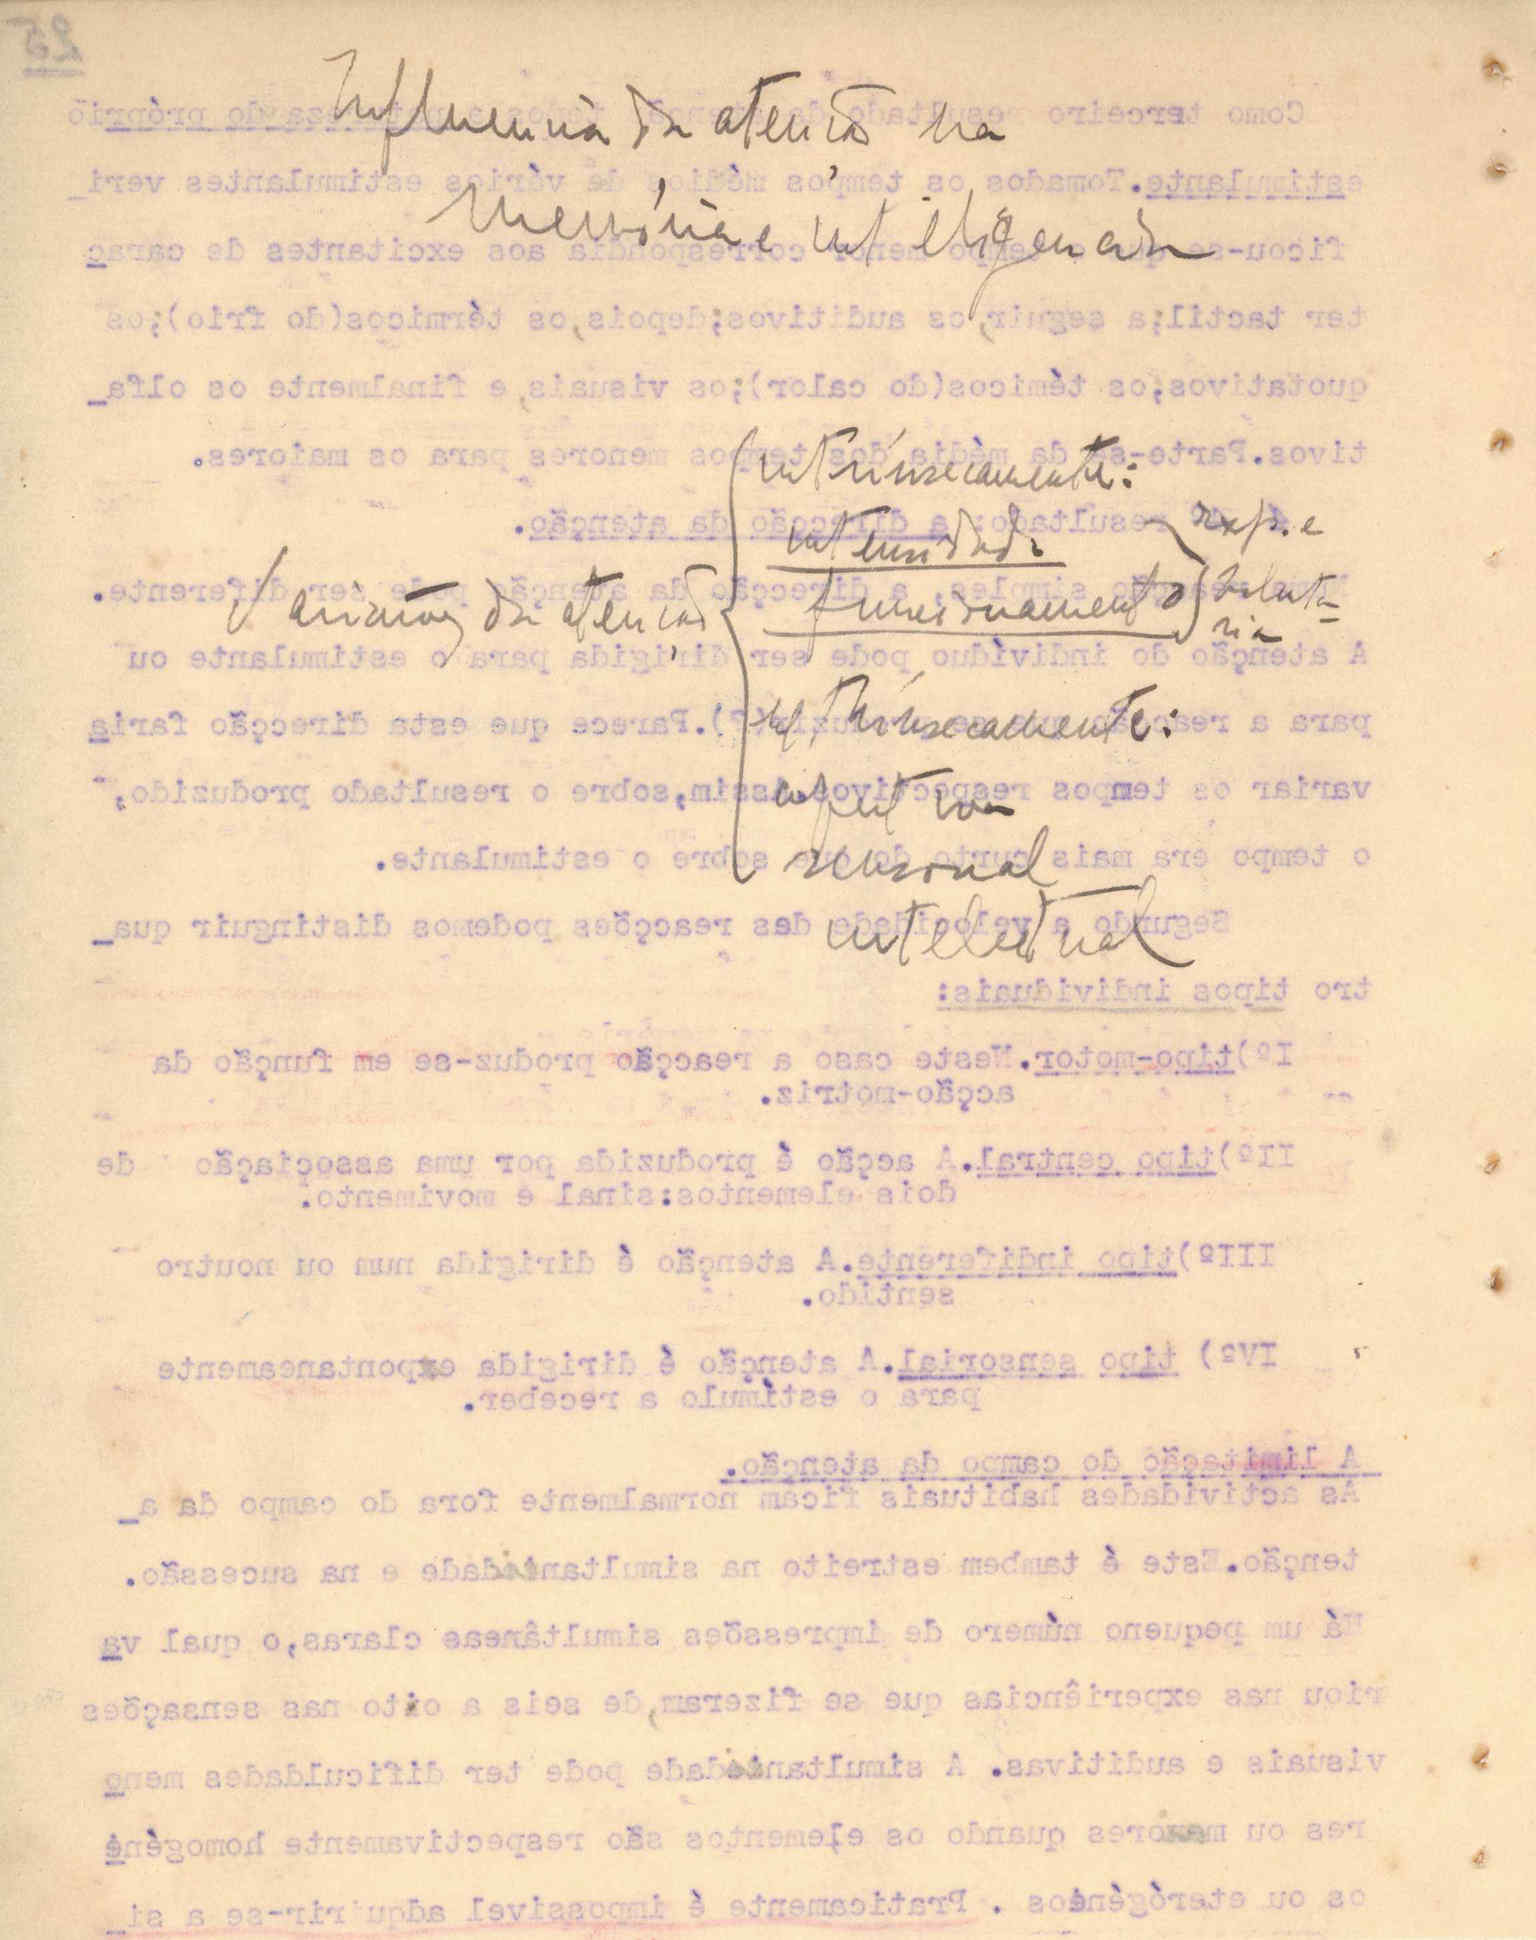 25
Influencia da atenção na
memória e inteligencia
Variações da atenção
intrínsecamente:
intensidade
funcionamento
exp. e
volunta-
ria
afectiva
sensorial
intelectual
Como terceiro resultado da do próprio
estimulante.Tomados os tempos médios de vários estimulantes veri_
ficou-se que o tempo menor correspondia aos excitantes de carac
ter tactil;a seguir,os auditivos;depois,os térmicos(do frio);os
quotativos;os témicos(do calor);os visuais,e finalmente os olfa_
tivos.Parte-se da média dos tempos menores para os maiores.
resultado: a direcção da atenção.
simples, a direcção da atenção pode ser diferente.
A atenção do indivíduo pode ser dirigida para o estimulante ou
para a reacção .Parece que esta direcção faria
variar os tempos respectivos.Assim,sobre o resultado produzido,
o tempo era mais curto do que sobre o estimulante.
Segundo a velocidade das reacções podemos distinguir qua_
tro tipos individuais:
Iº)tipo-motor.Neste caso a reacção produz-se em função da
acção-motriz.
IIº)tipo central.A acção é produzida por uma associação de
dois elementos:sinal e movimento.
IIIº)tipo indiferente.A atenção é dirigida num ou noutro
sentido.
IVº) tipo sensorial.A atenção é dirigida expontaneamente
para o estímulo a receber.
A limitação do campo da atenção.
As actividades habituais ficam normalmente fora do campo da a_
tenção.Este é tambem estreito na simultaneidade e na sucessão.
Há um pequeno número de impressões simultâneas claras,o qual va
riou nas experiências que se fizeram,de seis a oito nas sensações
visuais e auditivas. A simultaneidade pode ter dificuldades meno
res ou menores quando os elementos são respectivamente homogéné
os ou eterógénéos . Praticamente é impossivel adquirir-se a si_